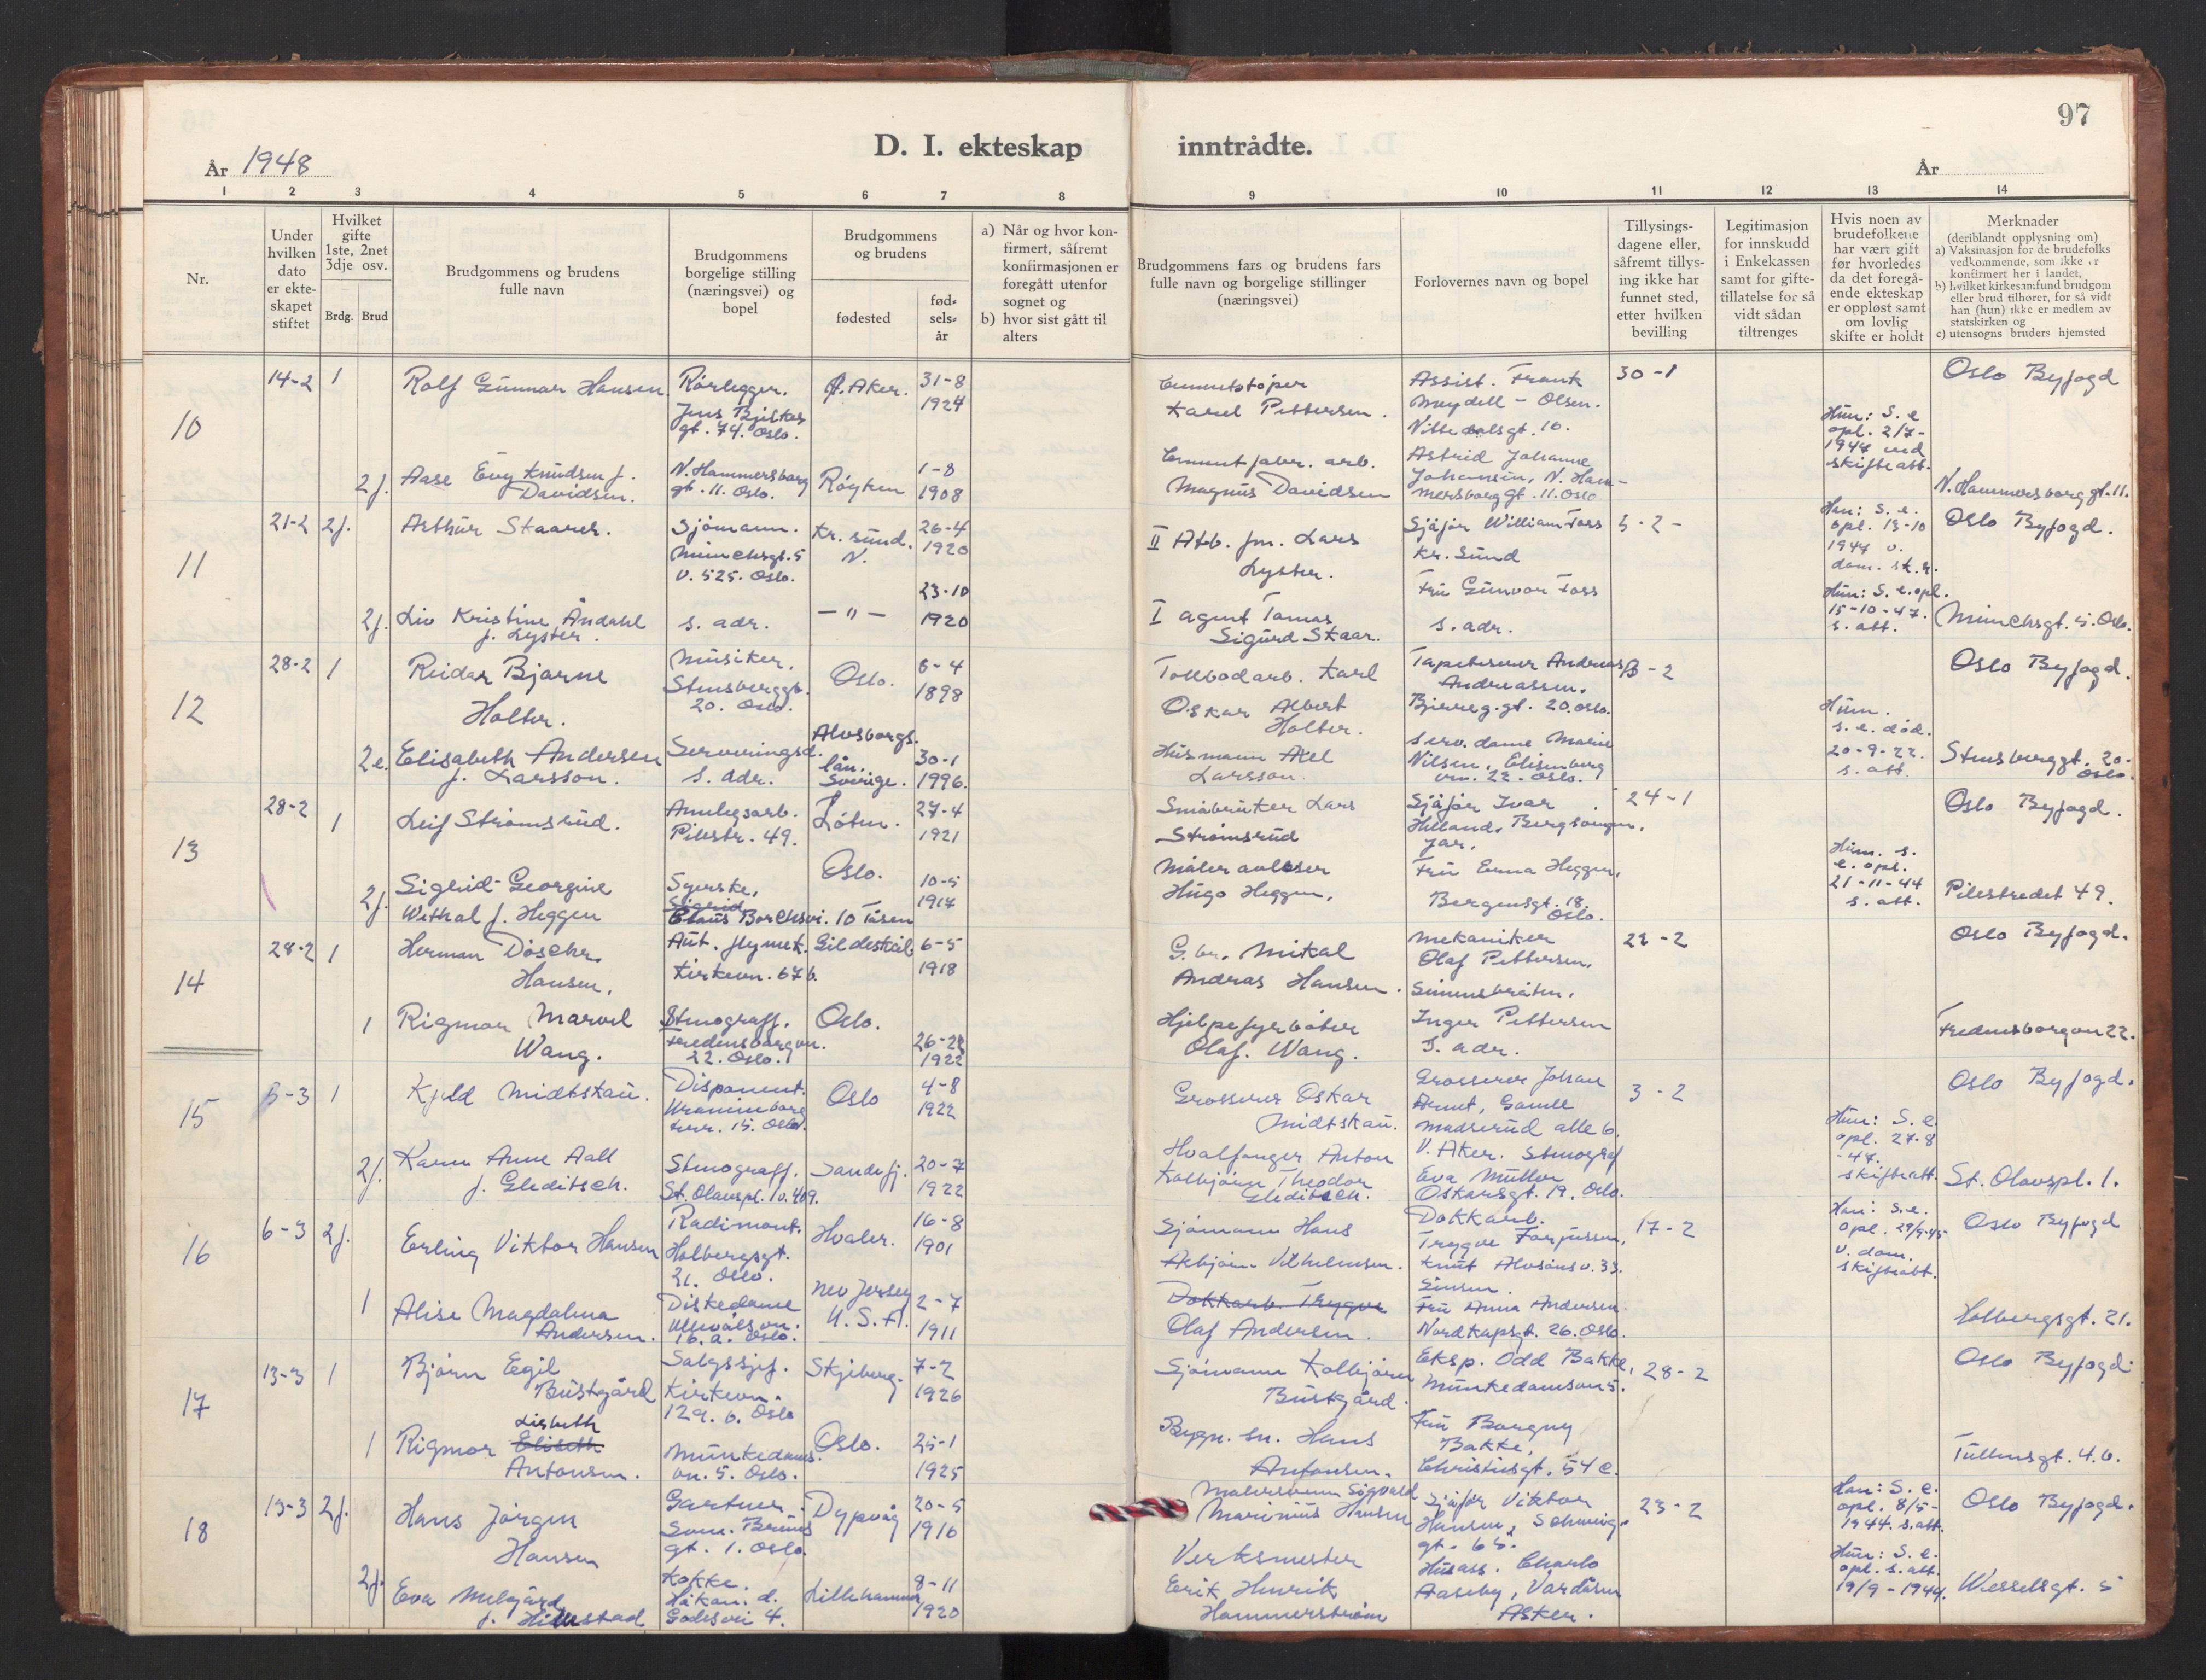 97
D. I. ekteskap inntrådte.
År 1948
År
1 2 3 4 5 6 7 8 9 10 11 12 13 14
Nr.
Under
hvilken
dato
er ekte-
skapet
stiftet
Hvilket
gifte
1ste, 2net
3dje osv.
Brdg. Brud
Brudgommens og brudens
fulle navn
Brudgommens
borgelige stilling
(næringsvei) og
bopel
Brudgommens
og brudens
fødested
fød-
sels-
år
a) Når og hvor kon-
firmert, såfremt
konfirmasjonen er
foregått utenfor
sognet og
b) hvor sist gått til
alters
Brudgommens fars og brudens fars
fulle navn og borgelige stillinger
(næringsvei)
Forlovernes navn og bopel
Tillysings-
dagene eller,
såfremt tillys-
ing ikke har
funnet sted,
etter hvilken
bevilling
Legitimasjon
for innskudd
i Enkekassen
samt for gifte-
tillatelse for så
vidt sådan
tiltrenges
Hvis noen av
brudefolkene
har vært gift
før hvorledes
da det foregå-
ende ekteskap
er oppløst samt
om lovlig
skifte er holdt
Merknader
(deriblandt opplysning om)
a) Vaksinasjon for de brudefolks
vedkommende, som ikke er
konfirmert her i landet,
b) hvilket kirkesamfund brudgom
eller brud tilhører, for så vidt
han (hun) ikke er medlem av
statskirken og
c) utensogns bruders hjemsted
10
14-2 1
Rolf Gunnar Hansen
Rørlegger.
Jens Bjelkes
gt. 74. Oslo.
Aker.
31-8
1924
Karel Pettersen.
Assist. Frank
Meydell - Olsen.
30-1
Oslo Byfogd
2f.
Aase Evy Knudsen f.
Davidsen.
N. Hammersborg
gt. 11. Oslo.
Røyken
1-8
1908
Cementfabr. arb.
Magnus Davidsen
Astrid Johanne
Johansen, N. Ham-
mersborg gt. 11. Oslo
Hun: S. e
opl. 2/7-
1947 ved
skifteatt.
N. Hammersborg gt. 11.
11
21-2 2f.
Arthur Staarer.
Sjømann.
Munchsgt. 5
v. 525. Oslo.
Kr. sund.
N.
26-4
1920
II Arb. fm. Lars
Lyster.
Sjåfør William Foss
Kr. Sund
5-2-
Han: S. e.
opl. 13-10
1947 v.
dom. sk. a.
Oslo Byfogd.
2f.
Liv Kristine Åndahl
f. Lyster.
s. adr.
— " —
23-10
1920
I agent Tomas
Sigurd Skaar.
Fru Gunvor Foss
s. adr.
Hun: S. e. opl.
15-10-47.
s. att.
Munchsgt. 5. Oslo.
12
28-2 1
Reidar Bjarne
Holter.
Musiker.
Stensberggt.
20. Oslo.
Oslo.
6-4
1898
Tollbodarb. Karl
Oskar Albert
Holter.
Tapetserer Andreas
Andreassen.
Bjerreg. gt. 20. Oslo.
-2
Oslo Byfogd.
2e.
Elisabeth Andersen
f. Larsson.
Serveringsd.
s. adr.
Alvsborgs.
län.
Sverige.
30-1
1996.
Husmann Axel
Larsson.
Serv. dame Marie
Nilsen, Elisenberg
vn. 22. Oslo.
Hun.
s. e. død.
20-9-22.
s. att.
Stensberggt. 20.
Oslo
13
28-2 1
Leif Strømsrud.
Anlegsarb.
Pilestr. 49.
Løten.
27-4
1921
Småbruker Lars
Strømsrud
Sjåfør Ivar
Helland, Bergsvingen,
Jar.
24-1
Oslo Byfogd.
2f.
Sigrid Georgine
Withal f. Heggen
Syerske.
Claus Borchsvi. 10 Tåsen
Oslo.
10-5
1917
Måleravleser
Hugo Heggen.
Fru Erna Heggen,
Bergensgt. 18.
Oslo.
Hun. s.
e. opl.
21-11-44
s. att.
Pilestredet 49.
14
28-2 1
Herman Døscher
Hansen.
Aut. flymek.
Kirkevn. 67 b.
Gildeskål
6-5
1918
G. br. Mikal
Andras Hansen.
Mekaniker
Olaf Pettersen,
Simensbråten.
22-2
Oslo Byfogd.
1
Rigmor Marvel
Wang.
Stenograff.
Fredensborgvn.
22. Oslo.
Oslo.
1922
Hjelpefyrbøter
Olaf. Wang.
Inger Pettersen
S. adr.
Fredensborgvn 22.
15
6-3 1
Kjeld Midtskau.
Disponent.
Uranienborg
terr. 15. Oslo.
Oslo
4-8
1922
Grosserer Oskar
Midtskau.
Grosserer Johan
Arnt, Gamle
Madserud alle 6.
V. Aker.
3-2
Oslo Byfogd.
2f.
Karen Anne Aall
f. Gleditsch.
Stenograff.
St. Olavspl. 1 v. 409.
Sandefj.
20-7
1922
Hvalfanger Anton
Kolbjørn Theodor
Gleditsch.
Stenograf
Eva Müller
Oskarsgt. 19. Oslo.
Hun: S. e.
opl. 27-8
-47.
skifteatt.
St. Olavspl. 1.
16
6-3 2f.
Erling Viktor Hansen
Radimont.
Holbergsgt.
21. Oslo.
Hvaler.
16-8
1901
Sjømann Hans
Vilhelmsen.
Dokkarb.
Trygve Torjussen,
Knut Alvsøns v. 33.
17-2
Han: S. e.
opl. 29/9-45
v. dom.
skifteatt.
Oslo Byfogd
1
Alise Magdalena
Andersen.
Diskedame
Ullevålsvn.
16. a. Oslo.
New Jersey
U. S. A.
2-7
1911
Dokkarb. Trygve
Olaf Andersen.
Fru Anna Andersen.
Nordkapsgt. 26. Oslo.
Holbergsgt. 21.
17
13-3 1
Bjørn Egil
Bustgård
Salgssjef.
Kirkevn.
129. b. Oslo
Skjeberg.
7-2
1926
Sjømann Kolbjørn
Bustgård.
Eksp. Odd Bakke,
Munkedamsvn 5.
28-2
Oslo Byfogd.
1
Lisbeth
Rigmor Eliseth
Antonsen.
Munkedams
vn. 5. Oslo.
Oslo.
25-1
1925
Bygn. sn. Hans
Antonsen.
Fru Borgny
Bakke,
Christiesgt. 54 c.
Tullinsgt. 4. b.
18
13-3 2f.
Hans Jørgen
Hansen
Gartner.
Som. Bruns
gt. 1. Oslo.
Dypvåg
20-5
1916
Malersvenn Sigvald
Marinius Hansen
Sjåfør Viktor
Hansen, Schweig.
gt. 65.
23-2
Han: S. e.
opl. 8/5-
1944. s. att.
Oslo Byfogd.
2f.
Eva Melgård
Kokke.
Håkon. d.
Godes vei 4.
Lillehammer
8-11
1920
Verksmester
Erik Henrik
Hammerstrøm
Husass. Charlo
Aaseby, Vardåsen
Asker.
Hun: S. e.
opl. s. att.
19/9-1944.
Wesselsgt. 5